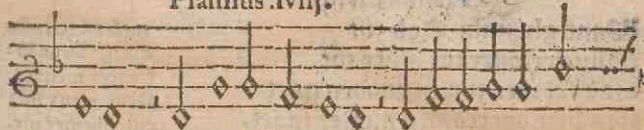 Psalmus .lviij.